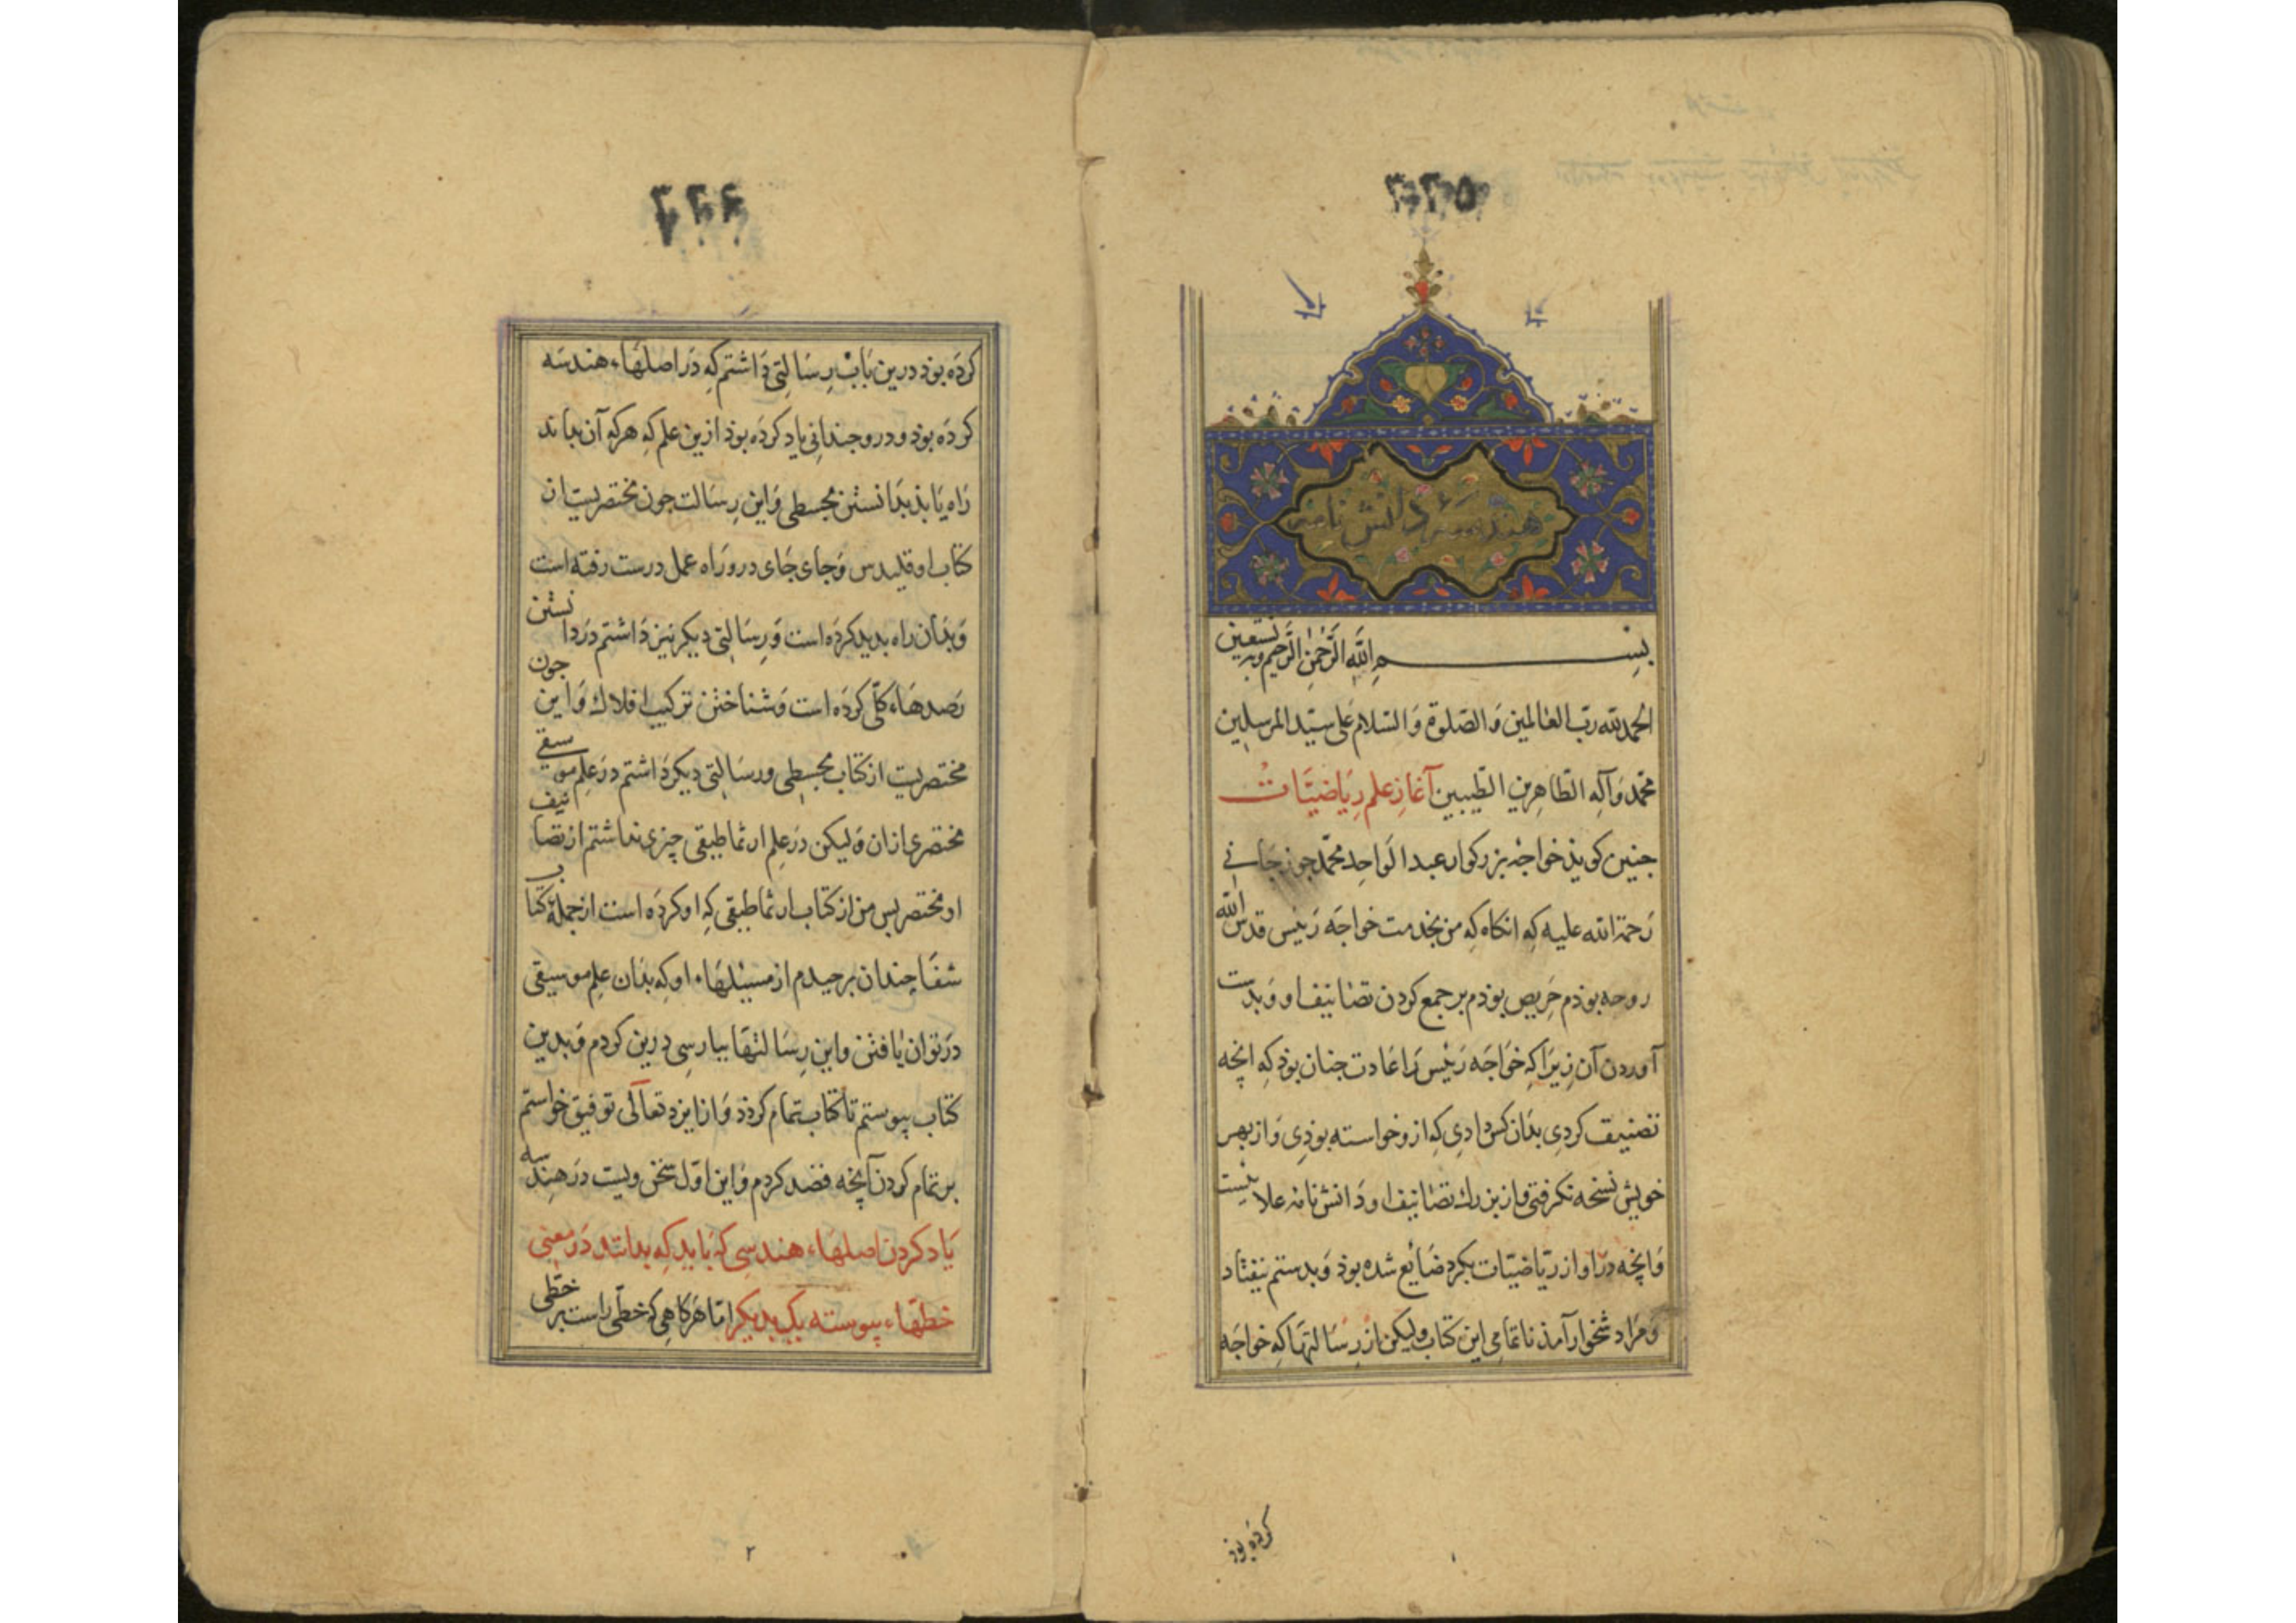 ۳۲۵
هندسه دانش نامه
بسم الله الرحمن الرحیم وبه نستعین
الحمدلله رب العالمین والصلوة والسلام علی سید المرسلین
محمد وآله الطاهرین الطیبین آغاز علم ریاضیات
جنین کویذ خواجه بزرکوار عبدالواحد محمد جوزجانی
رحمة الله علیه که انکاه که من بخدمت خواجه رئیس قدس الله
روحه بوذم حریص بوذم بر جمع کردن تصانیف او و بدست
آوردن آن زیرا که خواجه رئیس را عادت جنان بوذ که انچه
تصنیف کردی بدان کس دادی که ازو خواسته بوذی و از بهر
خویش نسخه نکرفتی و از بزرك تصانیف او دانش نامه علائیست
وانچه در او از ریاضیات بکرد ضایع شده بوذ و بدستم نیفتاد
و مرا دشخوار آمذ ناتمامی این کتاب ولیکن از رسالتها که خواجه
کرده بوذ
۱
۳۲۶
کرده بوذ درین باب رسالتی داشتم که در اصلهاء هندسه
کرده بوذ و درو جندانی یاد کرده بوذ ازین علم که هرکه آن بداند
راه یابذ بدانستن مجسطی و این رسالت جون مختصریست از
کتاب اوقلیدس و جای جای درو راه عمل درست رفته است
و بدان راه بدید کرده است و رسالتی دیکر نیز داشتم در دانستن
رصدهاء کلی کرده است و شناختن ترکیب افلاك و این جون
مختصریست از کتاب مجسطی و رسالتی دیکر داشتم در علم موسیقی
مختصری ازان ولیکن در علم ارثماطیقی چیزی نداشتم از تصانیف
او مختصر بس من از کتاب ارثماطیقی که او کرده است از جملهٔ کتاب
شفا چندان برجیدم از مسیلهاء او که بدان علم موسیقی
در توان یافتن و این رسالتها بپارسی درین کردم و بدین
کتاب پیوستم تا کتاب تمام کردد و از ایزد تعالی توفیق خواستم
بر تمام کردن آنچه قصد کردم و این اول سخن ویست در هندسه
یاد کردن اصلهاء هندسی که باید که بدانند در معنی
خطهاء پیوسته یک بدیکر اما هرکاهی که خطی راست بر خطی
۲